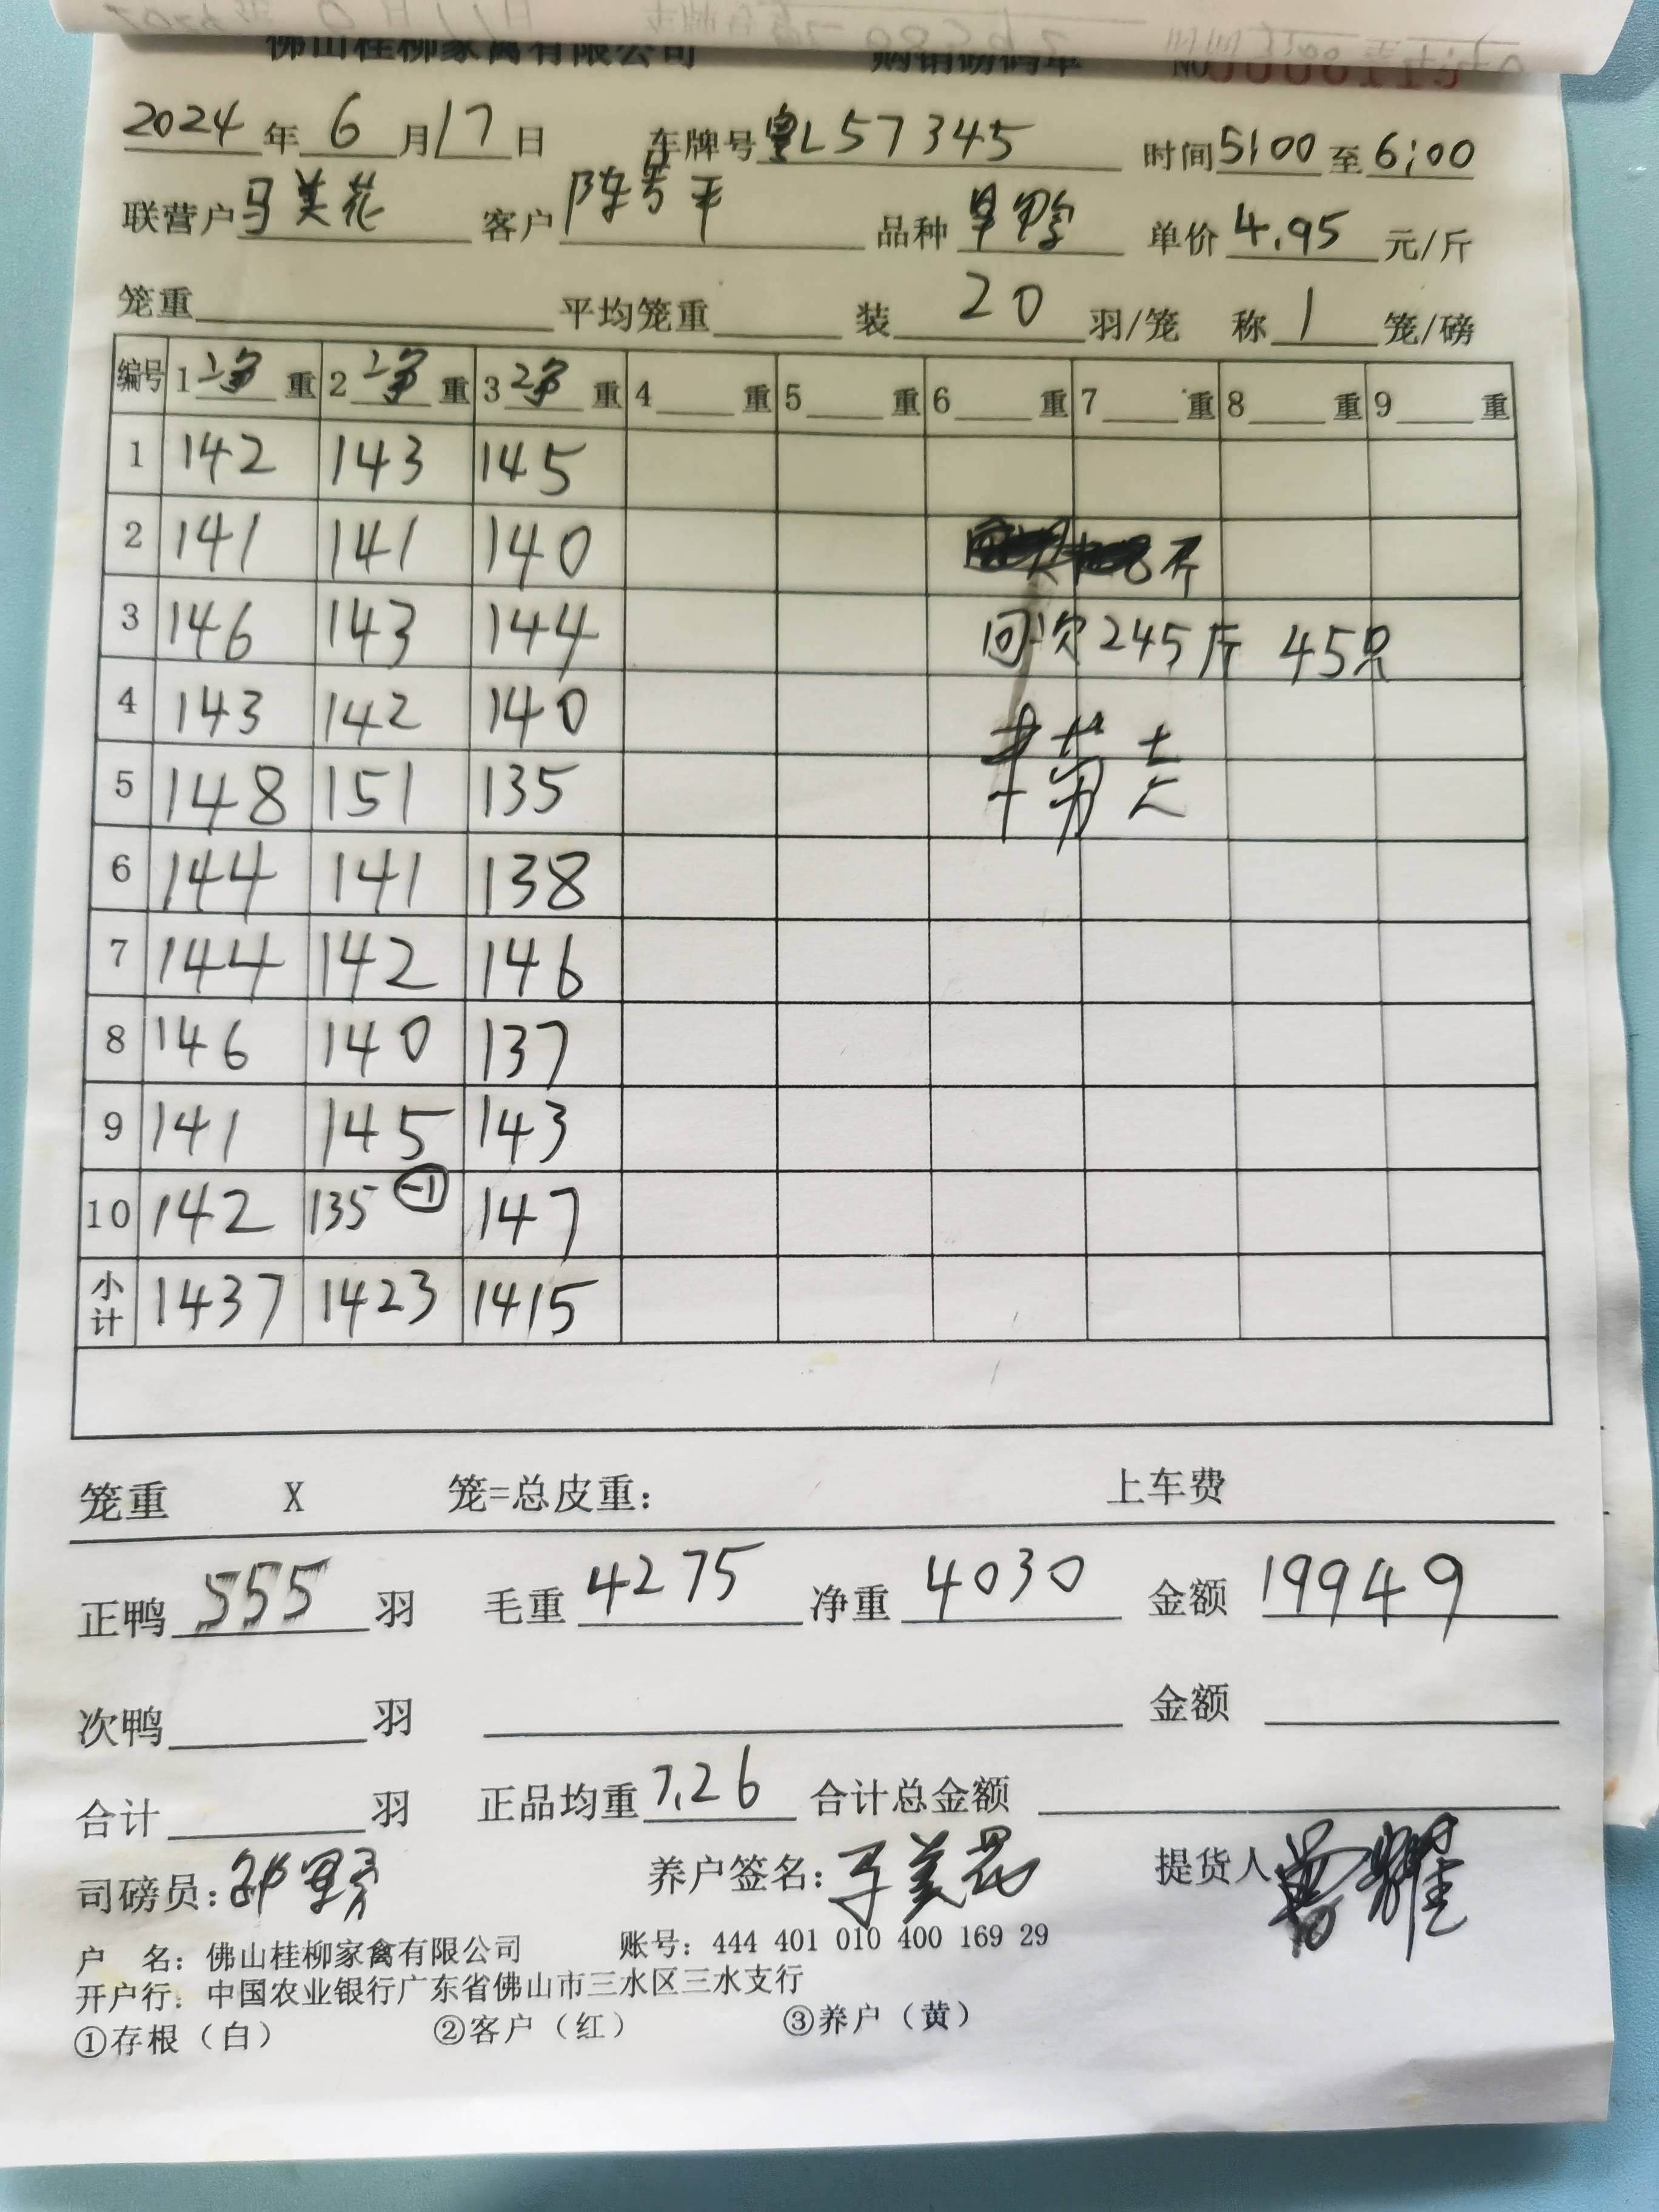 佛山桂柳家禽有限公司 购销磅码单 NO
2024年6月17日 车牌号粤L57345 时间5:00至6:00
联营户马美花 客户陈芳平 品种旱鸭 单价4.95元/斤
笼重 平均笼重 装20羽/笼 称1笼/磅
编号 1净重 2净重 3净重 4重 5重 6重 7重 8重 9重
1 142 143 145
2 141 141 140 斤
3 146 143 144 回次245斤 45只
4 143 142 140
5 148 151 135
6 144 141 138
7 144 142 146
8 146 140 137
9 141 145 143
10 142 135 -1 147
小计 1437 1423 1415
笼重 X 笼=总皮重: 上车费
正鸭555羽 毛重4275 净重4030 金额19949
次鸭 羽 金额
合计 羽 正品均重7.26 合计总金额
司磅员: 养户签名:马美花 提货人
户 名: 佛山桂柳家禽有限公司 账号: 444 401 010 400 169 29
开户行: 中国农业银行广东省佛山市三水区三水支行
①存根（白） ②客户（红） ③养户（黄）